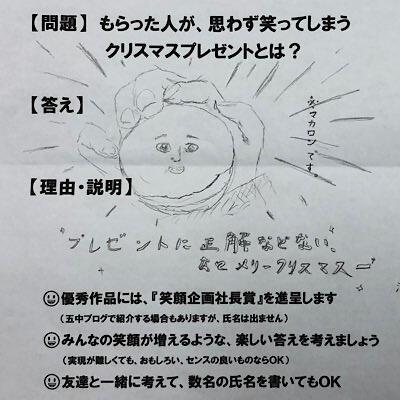 【問題】 もらった人が、思わず笑ってしまう
クリスマスプレゼントとは？
【答え】
※マカロンです。
【理由・説明】
"プレゼントに正解などない、
メリークリスマス
優秀作品には、『笑顔企画社長賞』を進呈します
（五中ブログで紹介する場合もありますが、氏名は出ません）
みんなの笑顔が増えるような、楽しい答えを考えましょう
（実現が難しくても、おもしろい、センスの良いものならOK）
友達と一緒に考えて、数名の氏名を書いてもOK